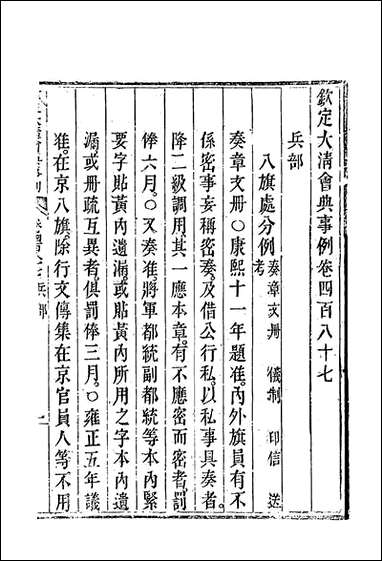 欽定大清會典事例卷四百八十七
兵部
八旗處分例 奏章文冊 儀制 印信 送考
奏章文冊〇康熙十一年題准。內外旗員有不
係密事妄稱密奏。及借公行私。以私事具奏者。
降二級調用。其一應本章。有不應密而密者。罰
俸六月。〇又奏准。將軍都統副都統等本內緊
要字貼黃內遺漏。或貼黃內所用之字本內遺
漏。或冊疏互異者。俱罰俸三月。〇雍正五年議
准。在京八旗除行文傳集在京官員人等不用
兵部